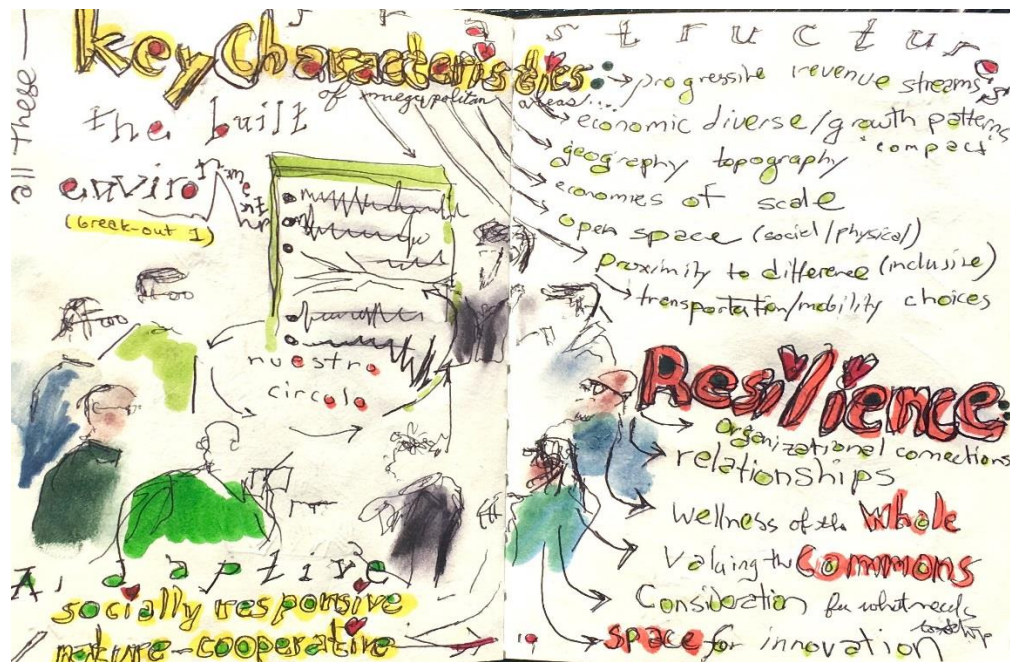 all these —
Key Characteristics:
of megapolitan areas....
the built
enviro
(break-out 1)
nuestro
circolo
Adaptive
socially responsive
nature-cooperative
structur
progressive revenue streams
economic diverse/growth patterns
"compact"
geography topography
economies of scale
open space (social/physical)
proximity to difference (inclusive)
transportation/mobility choices
Resilience:
organizational connections
relationships
wellness of the whole
Valuing the Commons
Consideration for what needs
space for innovation